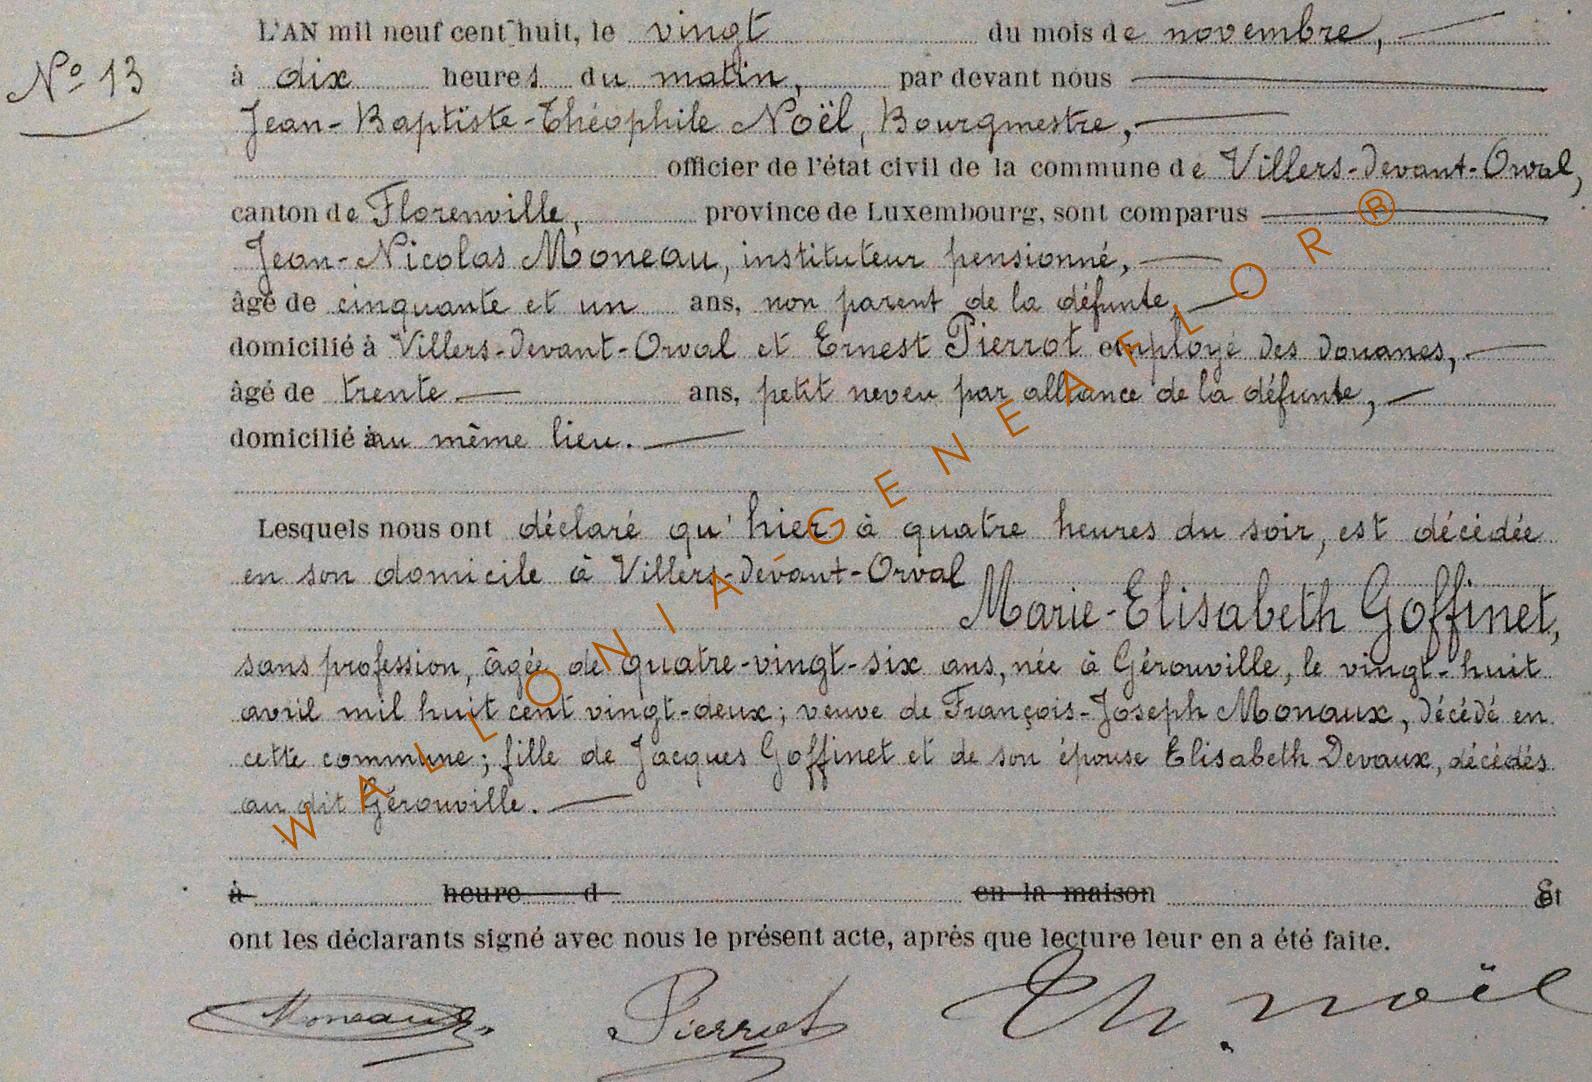 L'AN mil neuf cent huit, le vingt du mois de novembre,
No 13
à dix heures du matin, par devant nous
Jean-Baptiste-Théophile Noël, Bourgmestre,
officier de l'état civil de la commune de Villers-devant-Orval,
canton de Florenville, province de Luxembourg, sont comparus
Jean-Nicolas Moneau, instituteur pensionné,
âgé de cinquante et un ans, non parent de la défunte,
domicilié à Villers-devant-Orval et Ernest Pierrot employé des douanes,
âgé de trente ans, petit neveu par alliance de la défunte,
domicilié au même lieu.
Lesquels nous ont déclaré qu'hier à quatre heures du soir, est décédée
en son domicile à Villers-devant-Orval
Marie-Elisabeth Goffinet,
sans profession, âgée de quatre-vingt-six ans, née à Gérouville, le vingt-huit
avril mil huit cent vingt-deux; veuve de François-Joseph Monaux, décédé en
cette commune; fille de Jacques Goffinet et de son épouse Elisabeth Devaux, décédés
au dit Gérouville.
à heure d en la maison Et
ont les déclarants signé avec nous le présent acte, après que lecture leur en a été faite.
Moneau Pierrot Th. Noël
WALLONIA GENEAFLOR ®